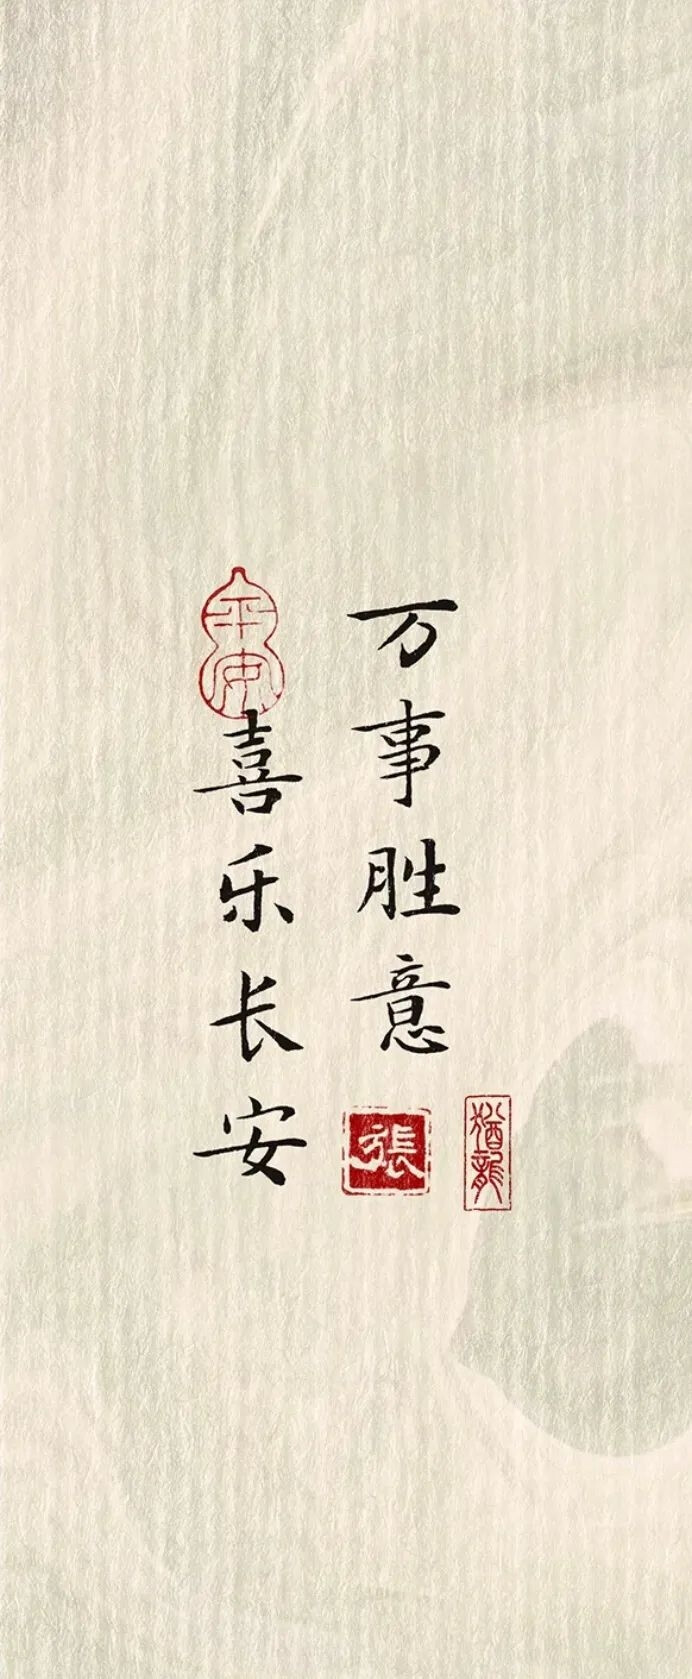 万事胜意
喜乐长安
平安
張
猶龍